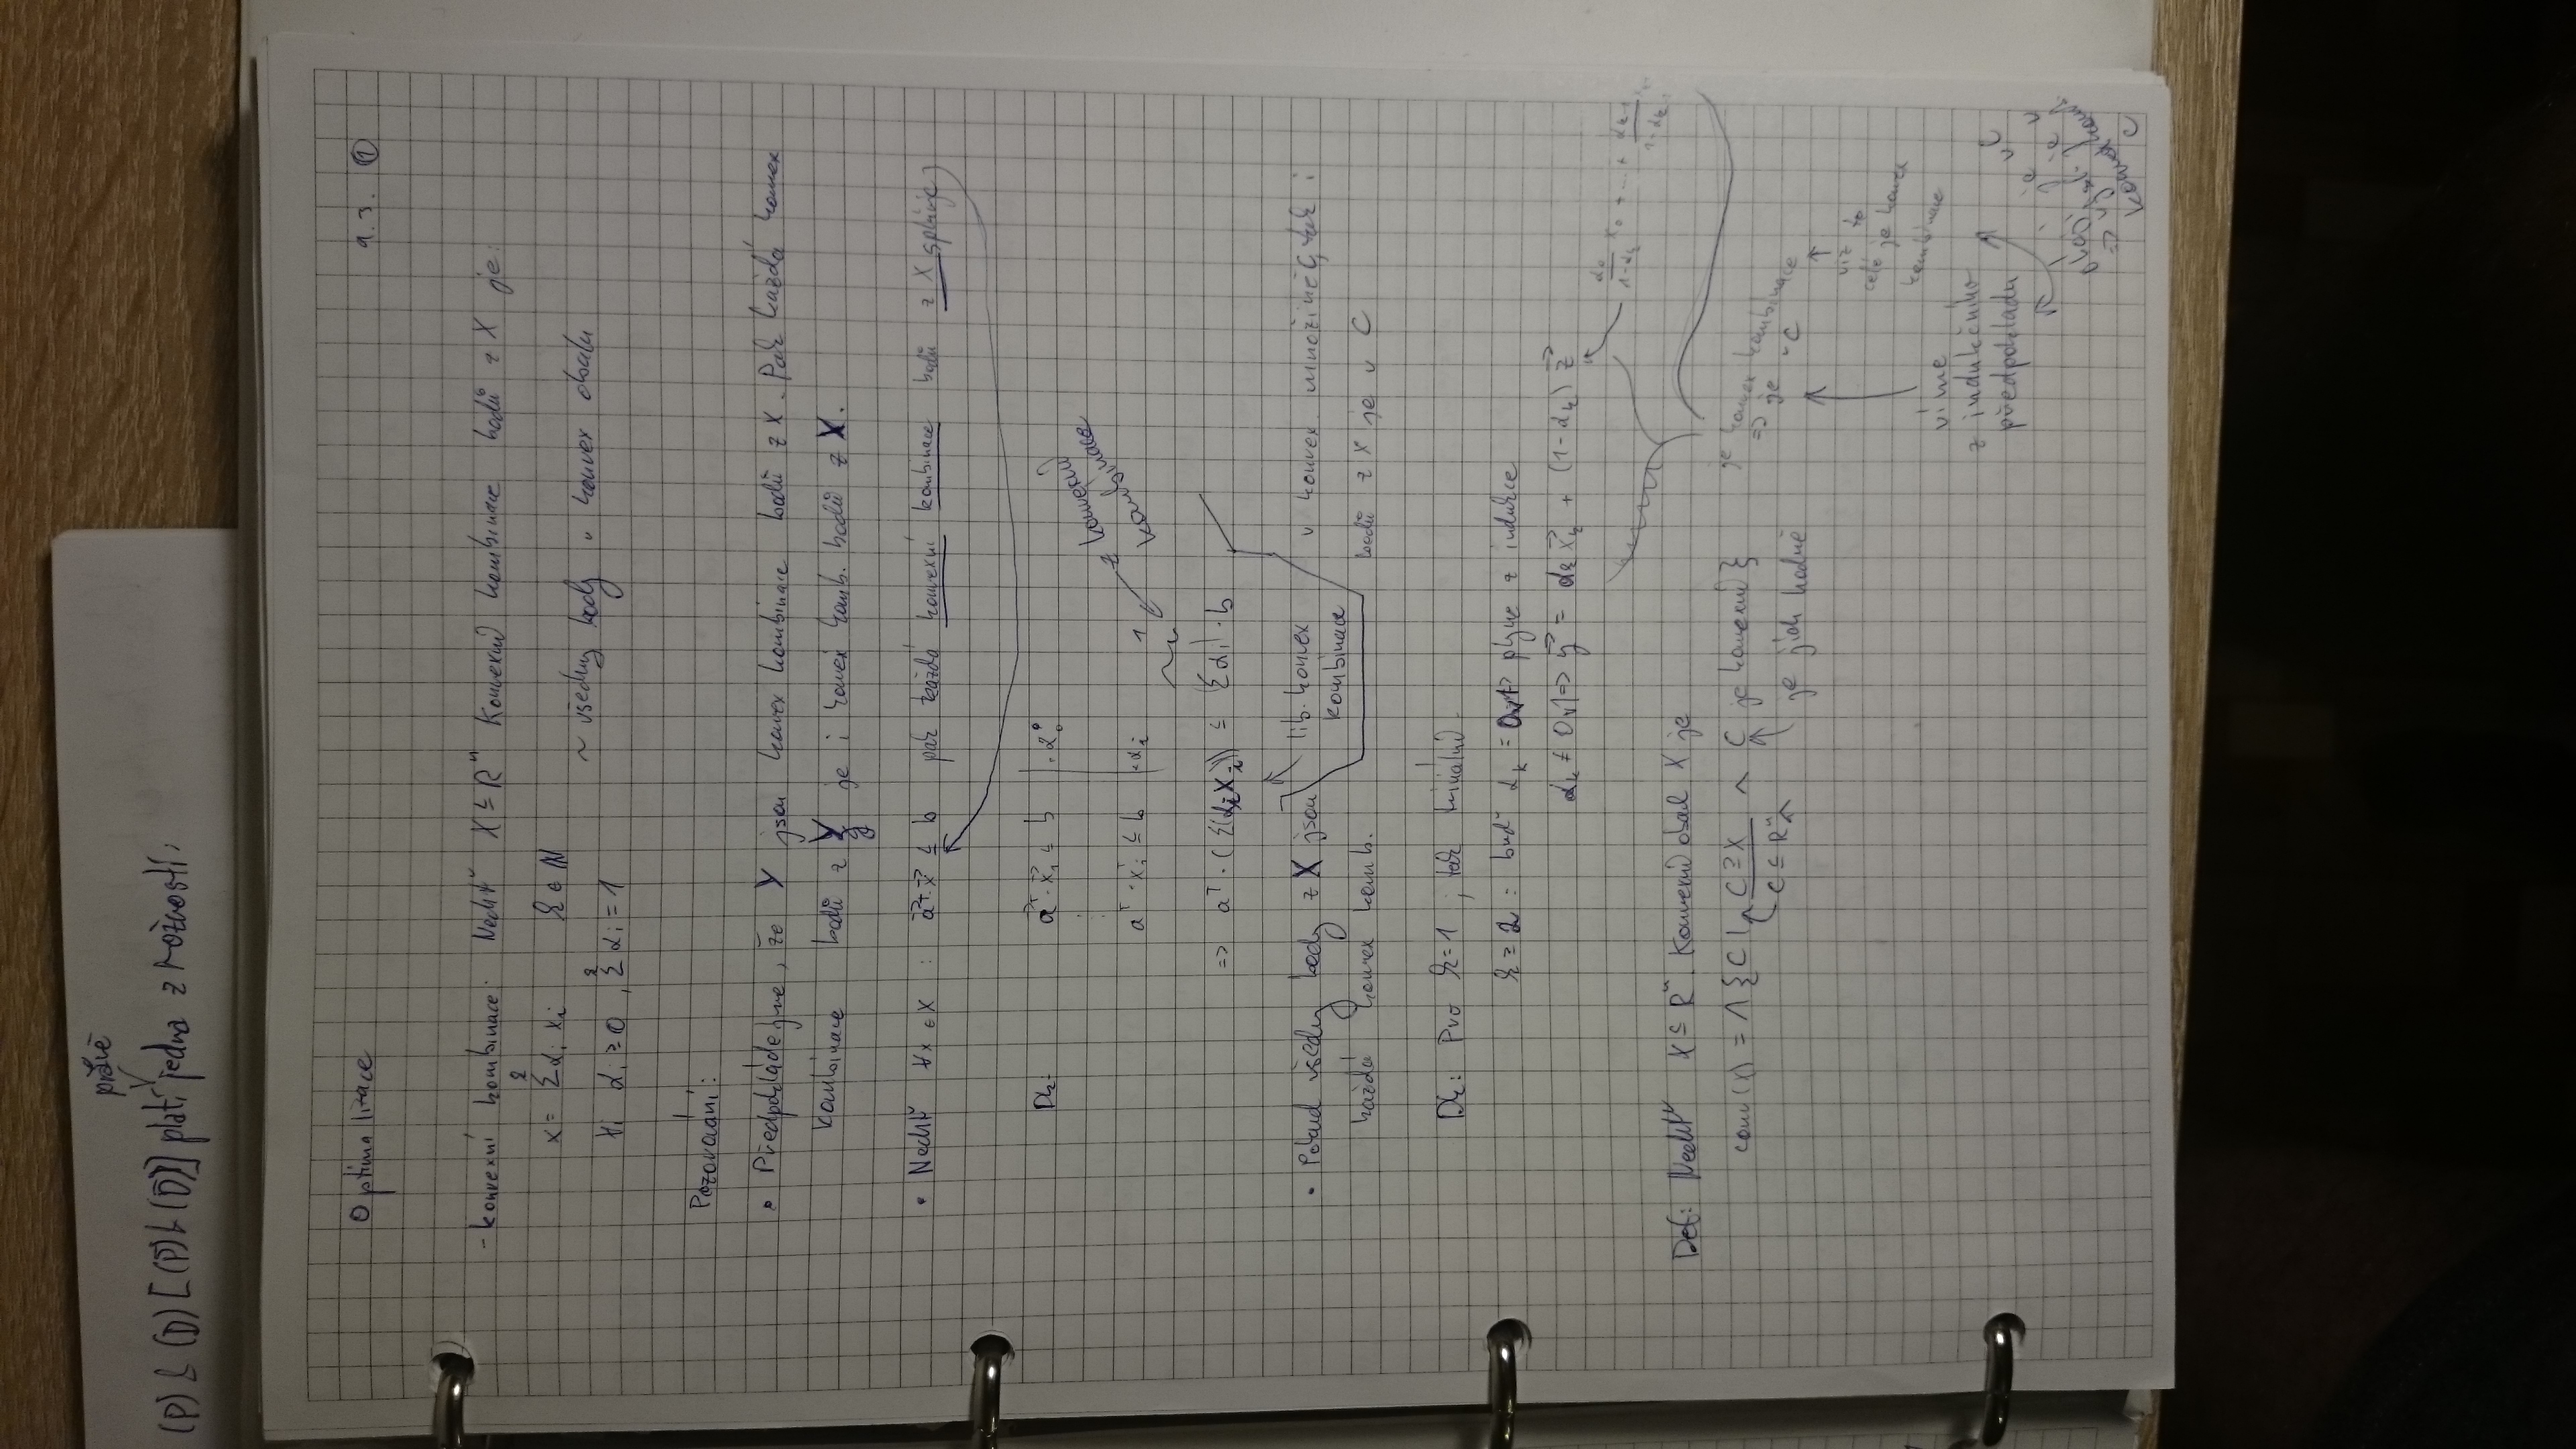 prává
(P) & (D) [(P) & (D)] platí jedna z možností:
Optimalizace
9. 3. ①
- konvexní kombinace: Nechť X ⊆ Rⁿ Konvexní kombinace bodů z X je:
x = Σ αᵢ xᵢ k ∈ N
∀i αᵢ ≥ 0, Σ αᵢ = 1
~ všechny body v konvex obalu
Pozorování:
• Předpokládejme, že Y jsou konvex kombinace bodů z X. Pak každá konvex
kombinace bodů z Y je i konvex komb. bodů z X.
• Nechť ∀x ∈ X : aᵀ·x ≤ b pak každá konvexní kombinace bodů z X splňuje
Dk: aᵀ·x₁ ≤ b |·α₀
aᵀ·xᵢ ≤ b |·αᵢ
z konvexní
kombinace
1
=> aᵀ·(Σ(αᵢxᵢ)) ≤ Σ|αᵢ|·b
• Pokud všechny body z X jsou v konvex množině C, tak i
každá konvex komb. bodů z X je v C
lib. konvex
kombinace
Dk: Pro k=1 ; tak triviální.
k ≥ 2 : buď αₖ = 0∨1 plyne z indukce
αₖ ≠ 0∨1 => y = αₖxₖ + (1-αₖ) z
α₀/1-αₖ x₀ + ... + αₖ₋₁/1-αₖ
je konvex kombinace
=> je v C
viz to
celé je konvex
kombinace
víme
z indukčního
předpokladu
je v C
=>
konvex C
Def: Nechť X ⊆ Rⁿ. Konvexní obal X je
conv(X) = ∩{C | C ⊇ X ∧ C je konvexní}
C ⊆ Rⁿ
je jich hodně